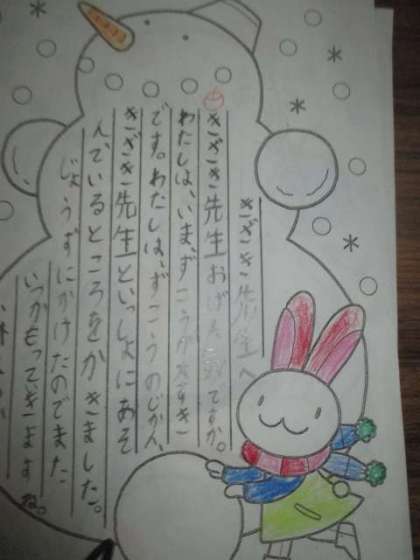 きざき先生へ
きざき先生おげん気ですか。
わたしは、いま、ずこうが大すき
です。わたしは、ずこうのじかん、
きざき先生といっしょにあそ
んでいるところをかきました。
じょうずにかけたのでまた
いつかもっていきますね。